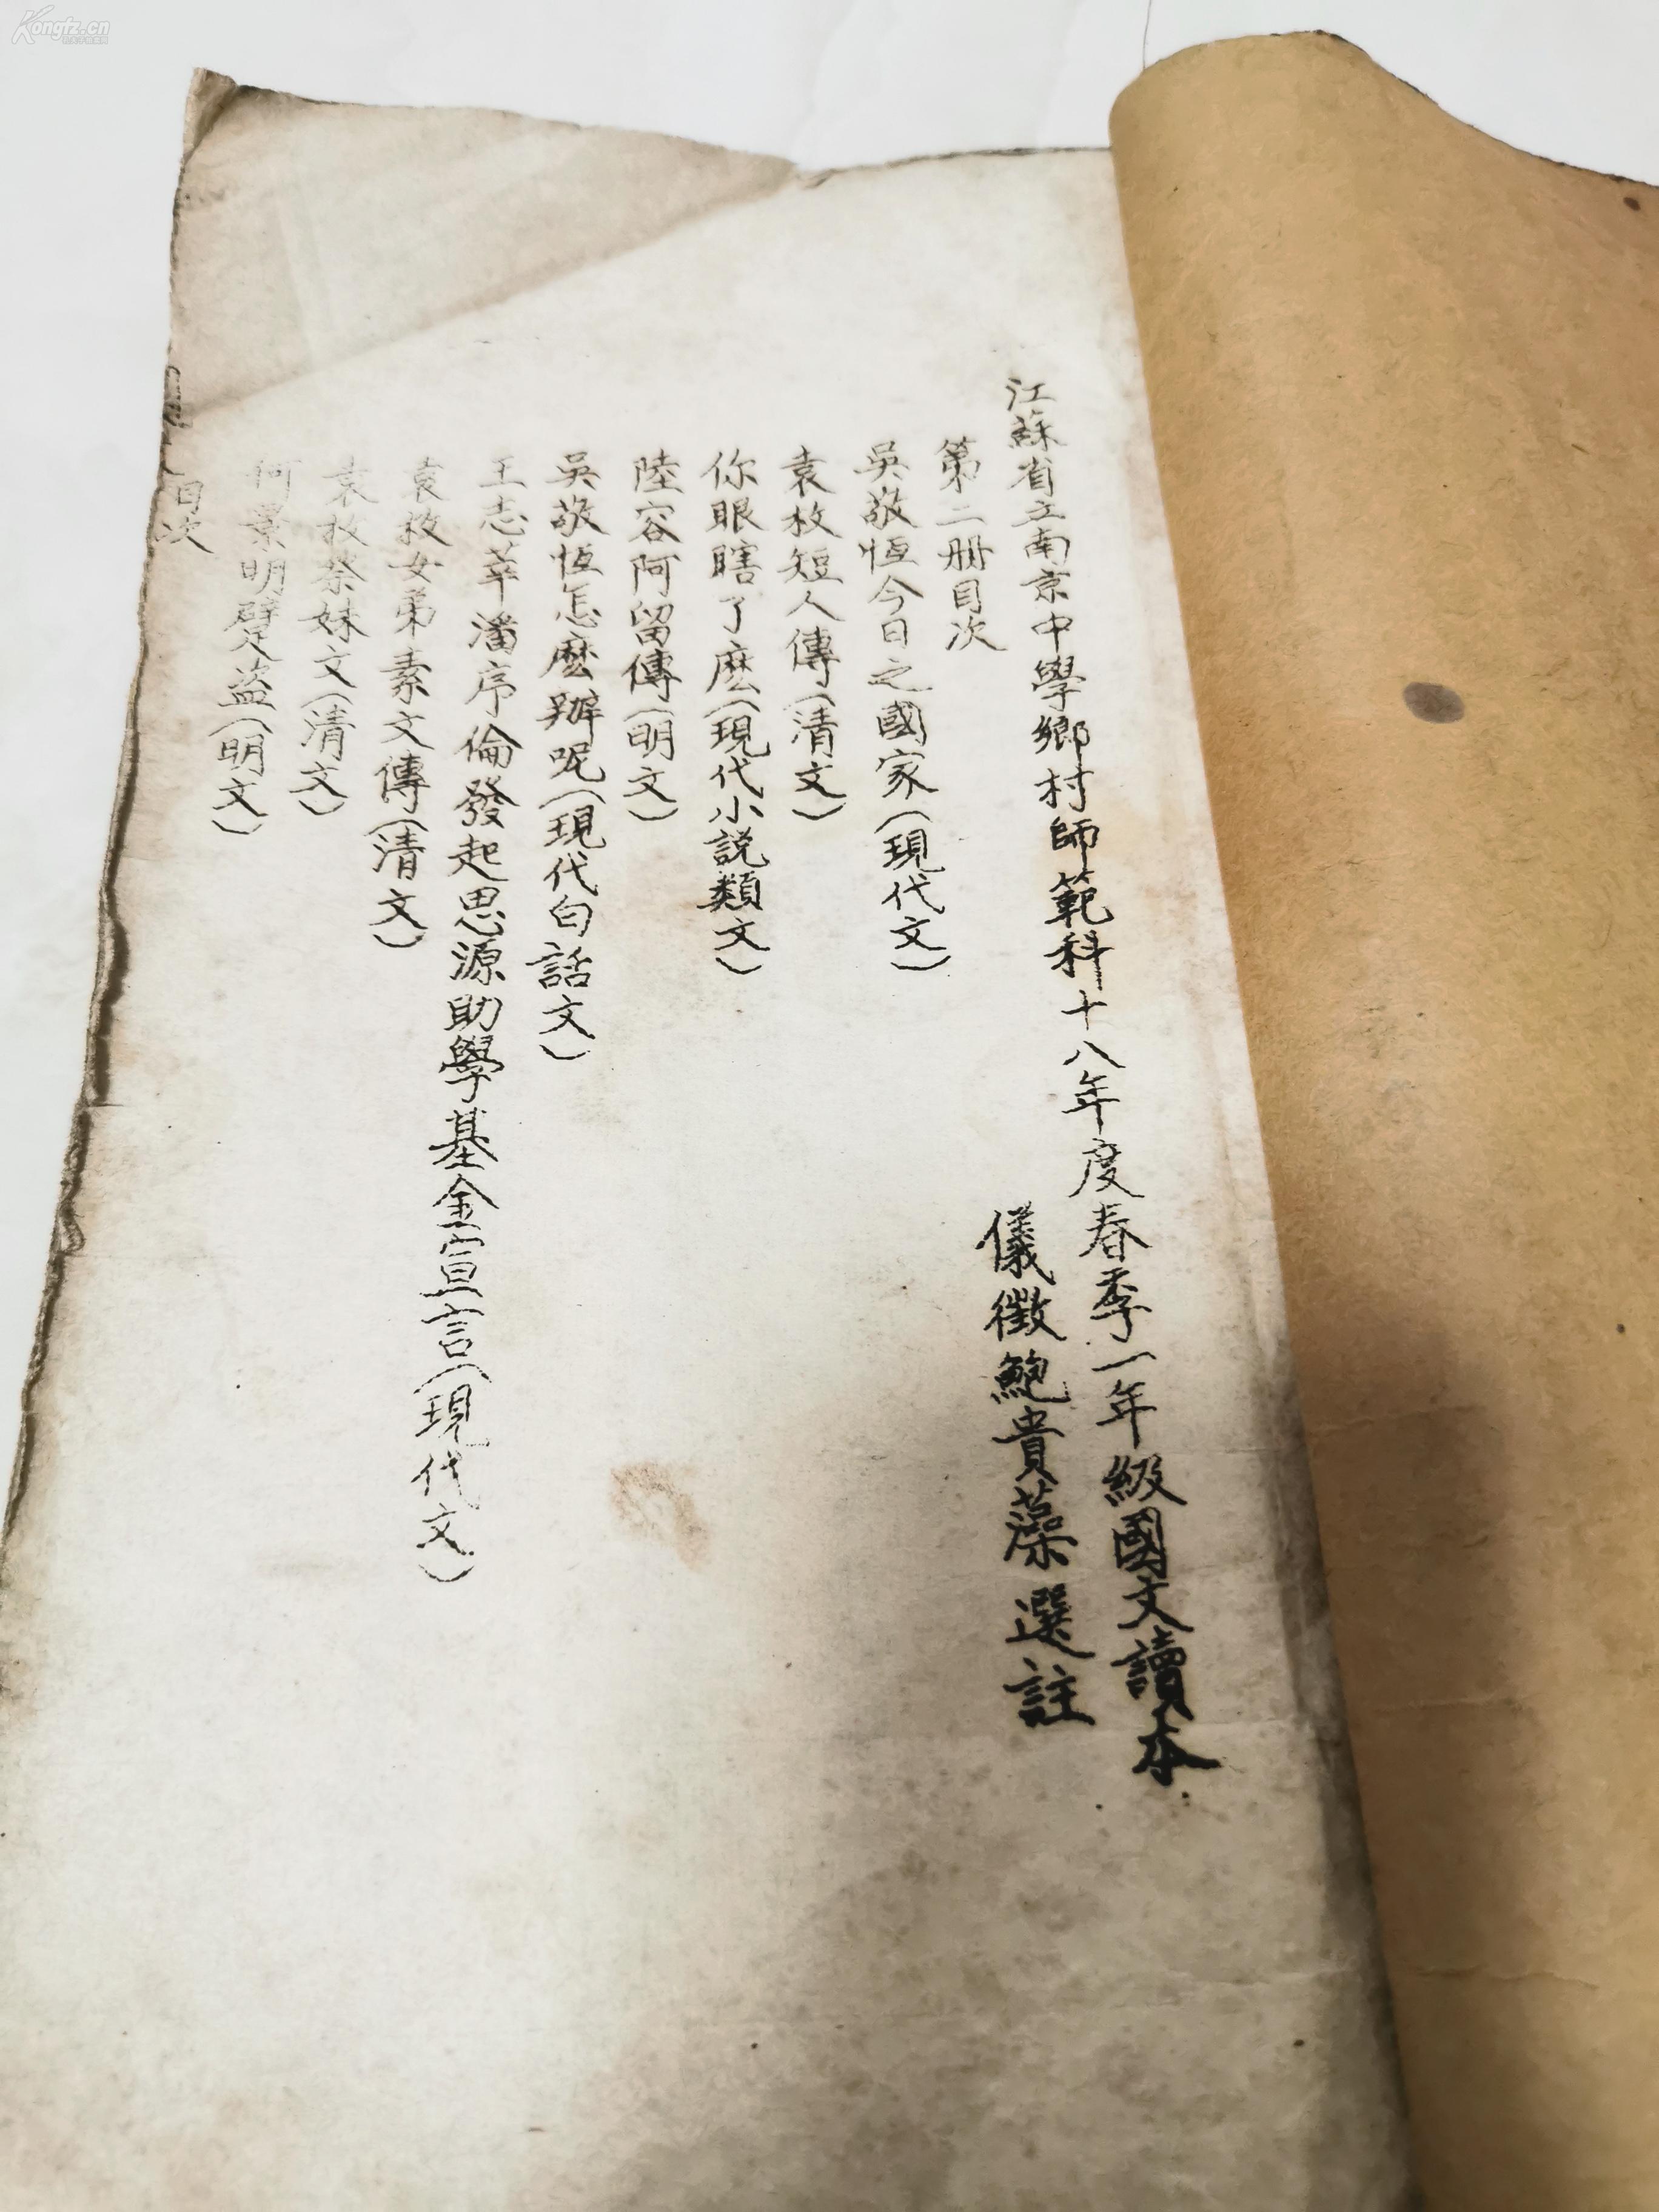 江蘇省立南京中學鄉村師範科十八年度春季一年級國文讀本
儀徵鮑貴藻選註
第二册目次
吳敬恆今日之國家(現代文)
袁枚短人傳(清文)
你眼瞎了麽(現代小説類文)
陸容阿留傳(明文)
吳敬恆怎麽辦呢(現代白話文)
王志莘潘序倫發起思源助學基金宣言(現代文)
袁枚女弟素文傳(清文)
袁枚祭妹文(清文)
何景明躄盗(明文)
目次
Kongfz.cn